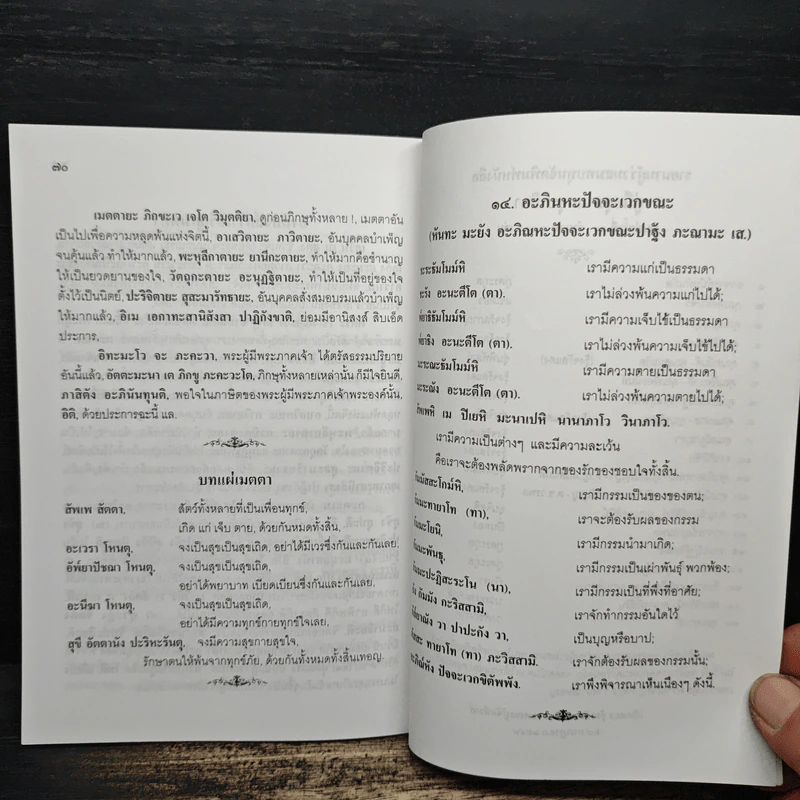 ๗๐
เมตตายะ ภิกขะเว เจโต วิมุตติยา, ดูก่อนภิกษุทั้งหลาย !, เมตตาอัน
เป็นไปเพื่อความหลุดพ้นแห่งจิตนี้, อาเสวิตายะ ภาวิตายะ, อันบุคคลบำเพ็ญ
จนคุ้นแล้ว ทำให้มากแล้ว, พะหุลีกาตายะ ยานีกะตายะ, ทำให้มากคือชำนาญ
ให้เป็นยวดยานของใจ, วัตถุกะตายะ อะนุฏฐิตายะ, ทำให้เป็นที่อยู่ของใจ
ตั้งไว้เป็นนิตย์, ปะริจิตายะ สุสะมารัทธายะ, อันบุคคลสั่งสมอบรมแล้วบำเพ็ญ
ให้มากแล้ว, อิเม เอกาทะสานิสังสา ปาฏิกังขาติ, ย่อมมีอานิสงส์ สิบเอ็ด
ประการ,
อิทะมะโว จะ ภะคะวา, พระผู้มีพระภาคเจ้า ได้ตรัสธรรมปริยาย
อันนี้แล้ว, อัตตะมะนา เต ภิกขู ภะคะวะโต, ภิกษุทั้งหลายเหล่านั้น ก็มีใจยินดี,
ภาสิตัง อะภินันทุนติ, พอใจในภาษิตของพระผู้มีพระภาคเจ้าพระองค์นั้น,
อิติ, ด้วยประการฉะนี้ แล.
บทแผ่เมตตา
สัพเพ สัตตา, สัตว์ทั้งหลายที่เป็นเพื่อนทุกข์,
เกิด แก่ เจ็บ ตาย, ด้วยกันหมดทั้งสิ้น,
อะเวรา โหนตุ, จงเป็นสุขเป็นสุขเถิด, อย่าได้มีเวรซึ่งกันและกันเลย,
อัพ๎ยาปัชฌา โหนตุ, จงเป็นสุขเป็นสุขเถิด,
อย่าได้พยาบาท เบียดเบียนซึ่งกันและกันเลย,
อะนีฆา โหนตุ, จงเป็นสุขเป็นสุขเถิด,
อย่าได้มีความทุกข์กายทุกข์ใจเลย,
สุขี อัตตานัง ปะริหะรันตุ, จงมีความสุขกายสุขใจ,
รักษาตนให้พ้นจากทุกข์ภัย, ด้วยกันทั้งหมดทั้งสิ้นเทอญ.
๑๔. อะภินหะปัจจะเวกขณะ
(หันทะ มะยัง อะภิณหะปัจจะเวกขณะปาฐัง ภะณามะ เส.)
ะระธัมโมม๎หิ เรามีความแก่เป็นธรรมดา
ะรัง อะนะตีโต (ตา). เราไม่ล่วงพ้นความแก่ไปได้;
ยาธิธัมโมม๎หิ เรามีความเจ็บไข้เป็นธรรมดา
ยาธิง อะนะตีโต (ตา). เราไม่ล่วงพ้นความเจ็บไข้ไปได้;
ะระณะธัมโมม๎หิ เรามีความตายเป็นธรรมดา
ะระณัง อะนะตีโต (ตา). เราไม่ล่วงพ้นความตายไปได้;
สัพเพหิ เม ปิเยหิ มะนาเปหิ นานาภาโว วินาภาโว.
เรามีความเป็นต่างๆ และมีความละเว้น
คือเราจะต้องพลัดพรากจากของรักของชอบใจทั้งสิ้น.
ัมมัสสะโกม๎หิ, เรามีกรรมเป็นของของตน;
ัมมะทายาโท (ทา), เราจะต้องรับผลของกรรม
ัมมะโยนิ, เรามีกรรมนำมาเกิด;
ัมมะพันธุ, เรามีกรรมเป็นเผ่าพันธุ์ พวกพ้อง;
ัมมะปะฏิสะระโน (นา), เรามีกรรมเป็นที่พึ่งที่อาศัย;
กัมมัง กะริสสามิ, เราจักทำกรรมอันใดไว้
ัล๎ยาณัง วา ปาปะกัง วา, เป็นบุญหรือบาป;
ัสสะ ทายาโท (ทา) ภะวิสสามิ. เราจักต้องรับผลของกรรมนั้น;
ะภิณ๎หัง ปัจจะเวกขิตัพพัง. เราพึงพิจารณาเห็นเนืองๆ ดังนี้.